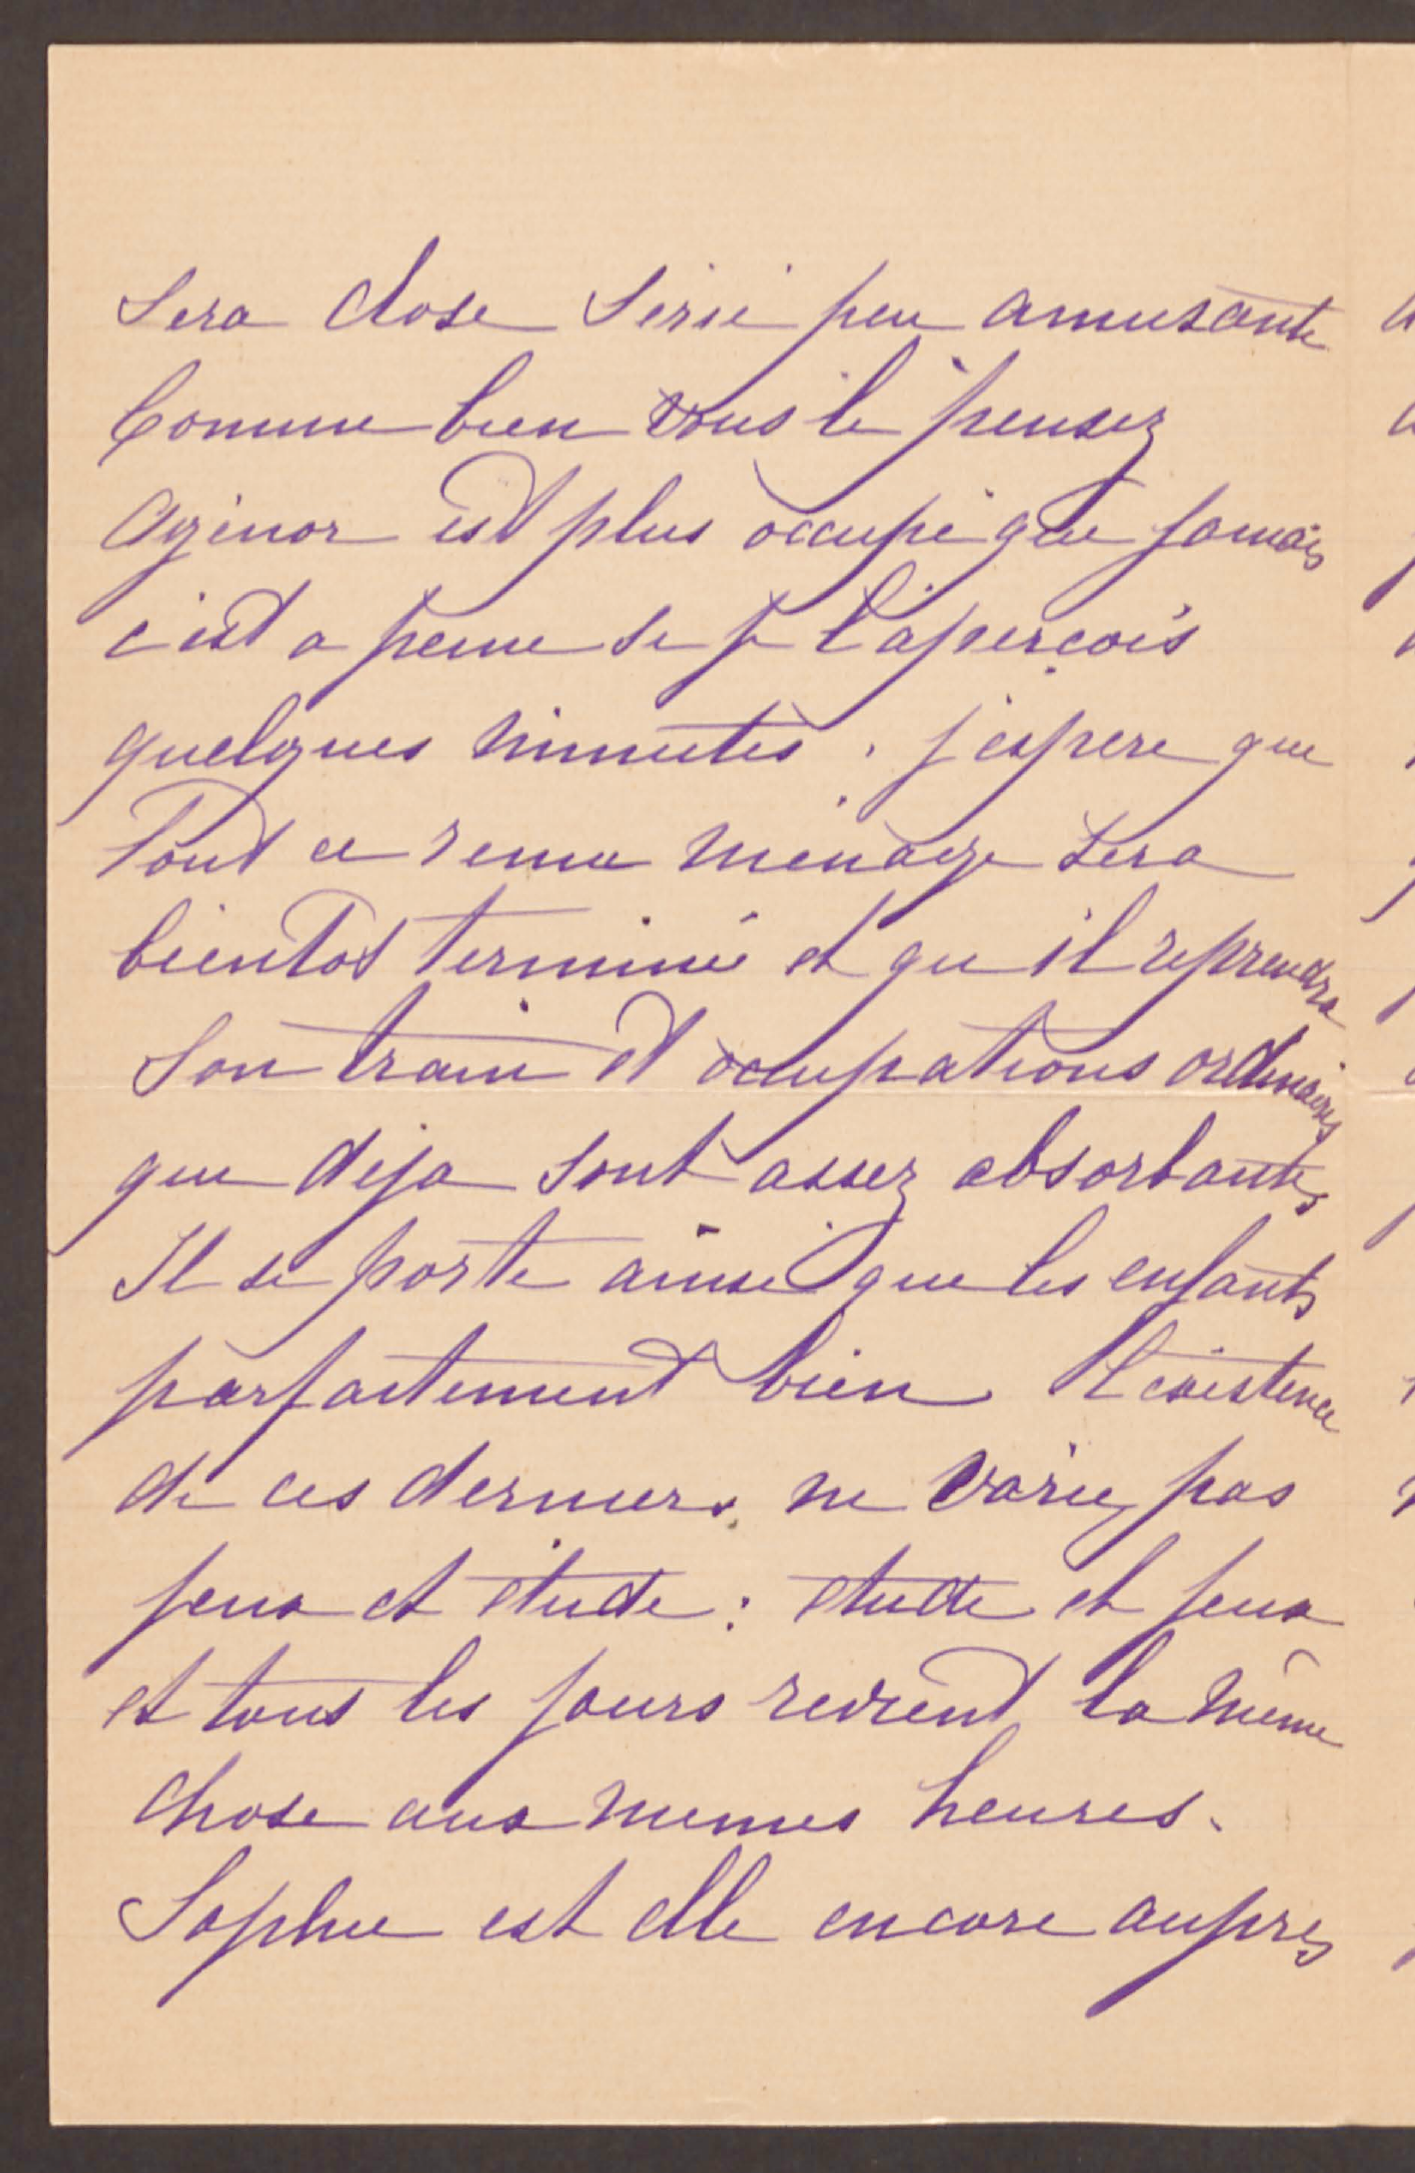 sera chose peu amusante
Comme bien vous le pensez
Agénor est plus occupé que jamais
c'est a peine si je l'aperçois
quelques minutes. j'espere que
Tout ce remue ménage sera
bientot terminé et qu'il reprendra
son train d'occupations ordinaires
que deja sont assez absorbantes
Il se porte ainsi que les enfants
parfaitement bien L'existence
de ces derniers ne varie pas
jeux et étude : etude et jeux
et tous les jours revient la même
chose aux memes heures.
Sophie est elle encore aupres